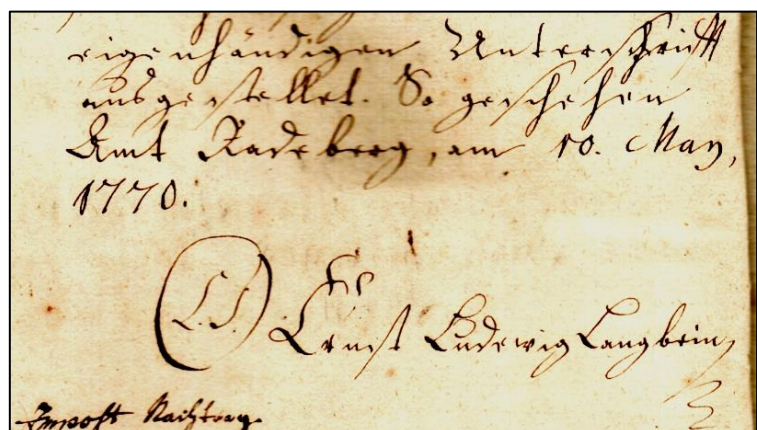 eigenhändigen Unterschrifft
ausgestellet. So geschehen
Amt Radeberg, am 10. May,
1770.
(L.S.) Ernst Ludwig Langbein,
Impost Nachtrag.